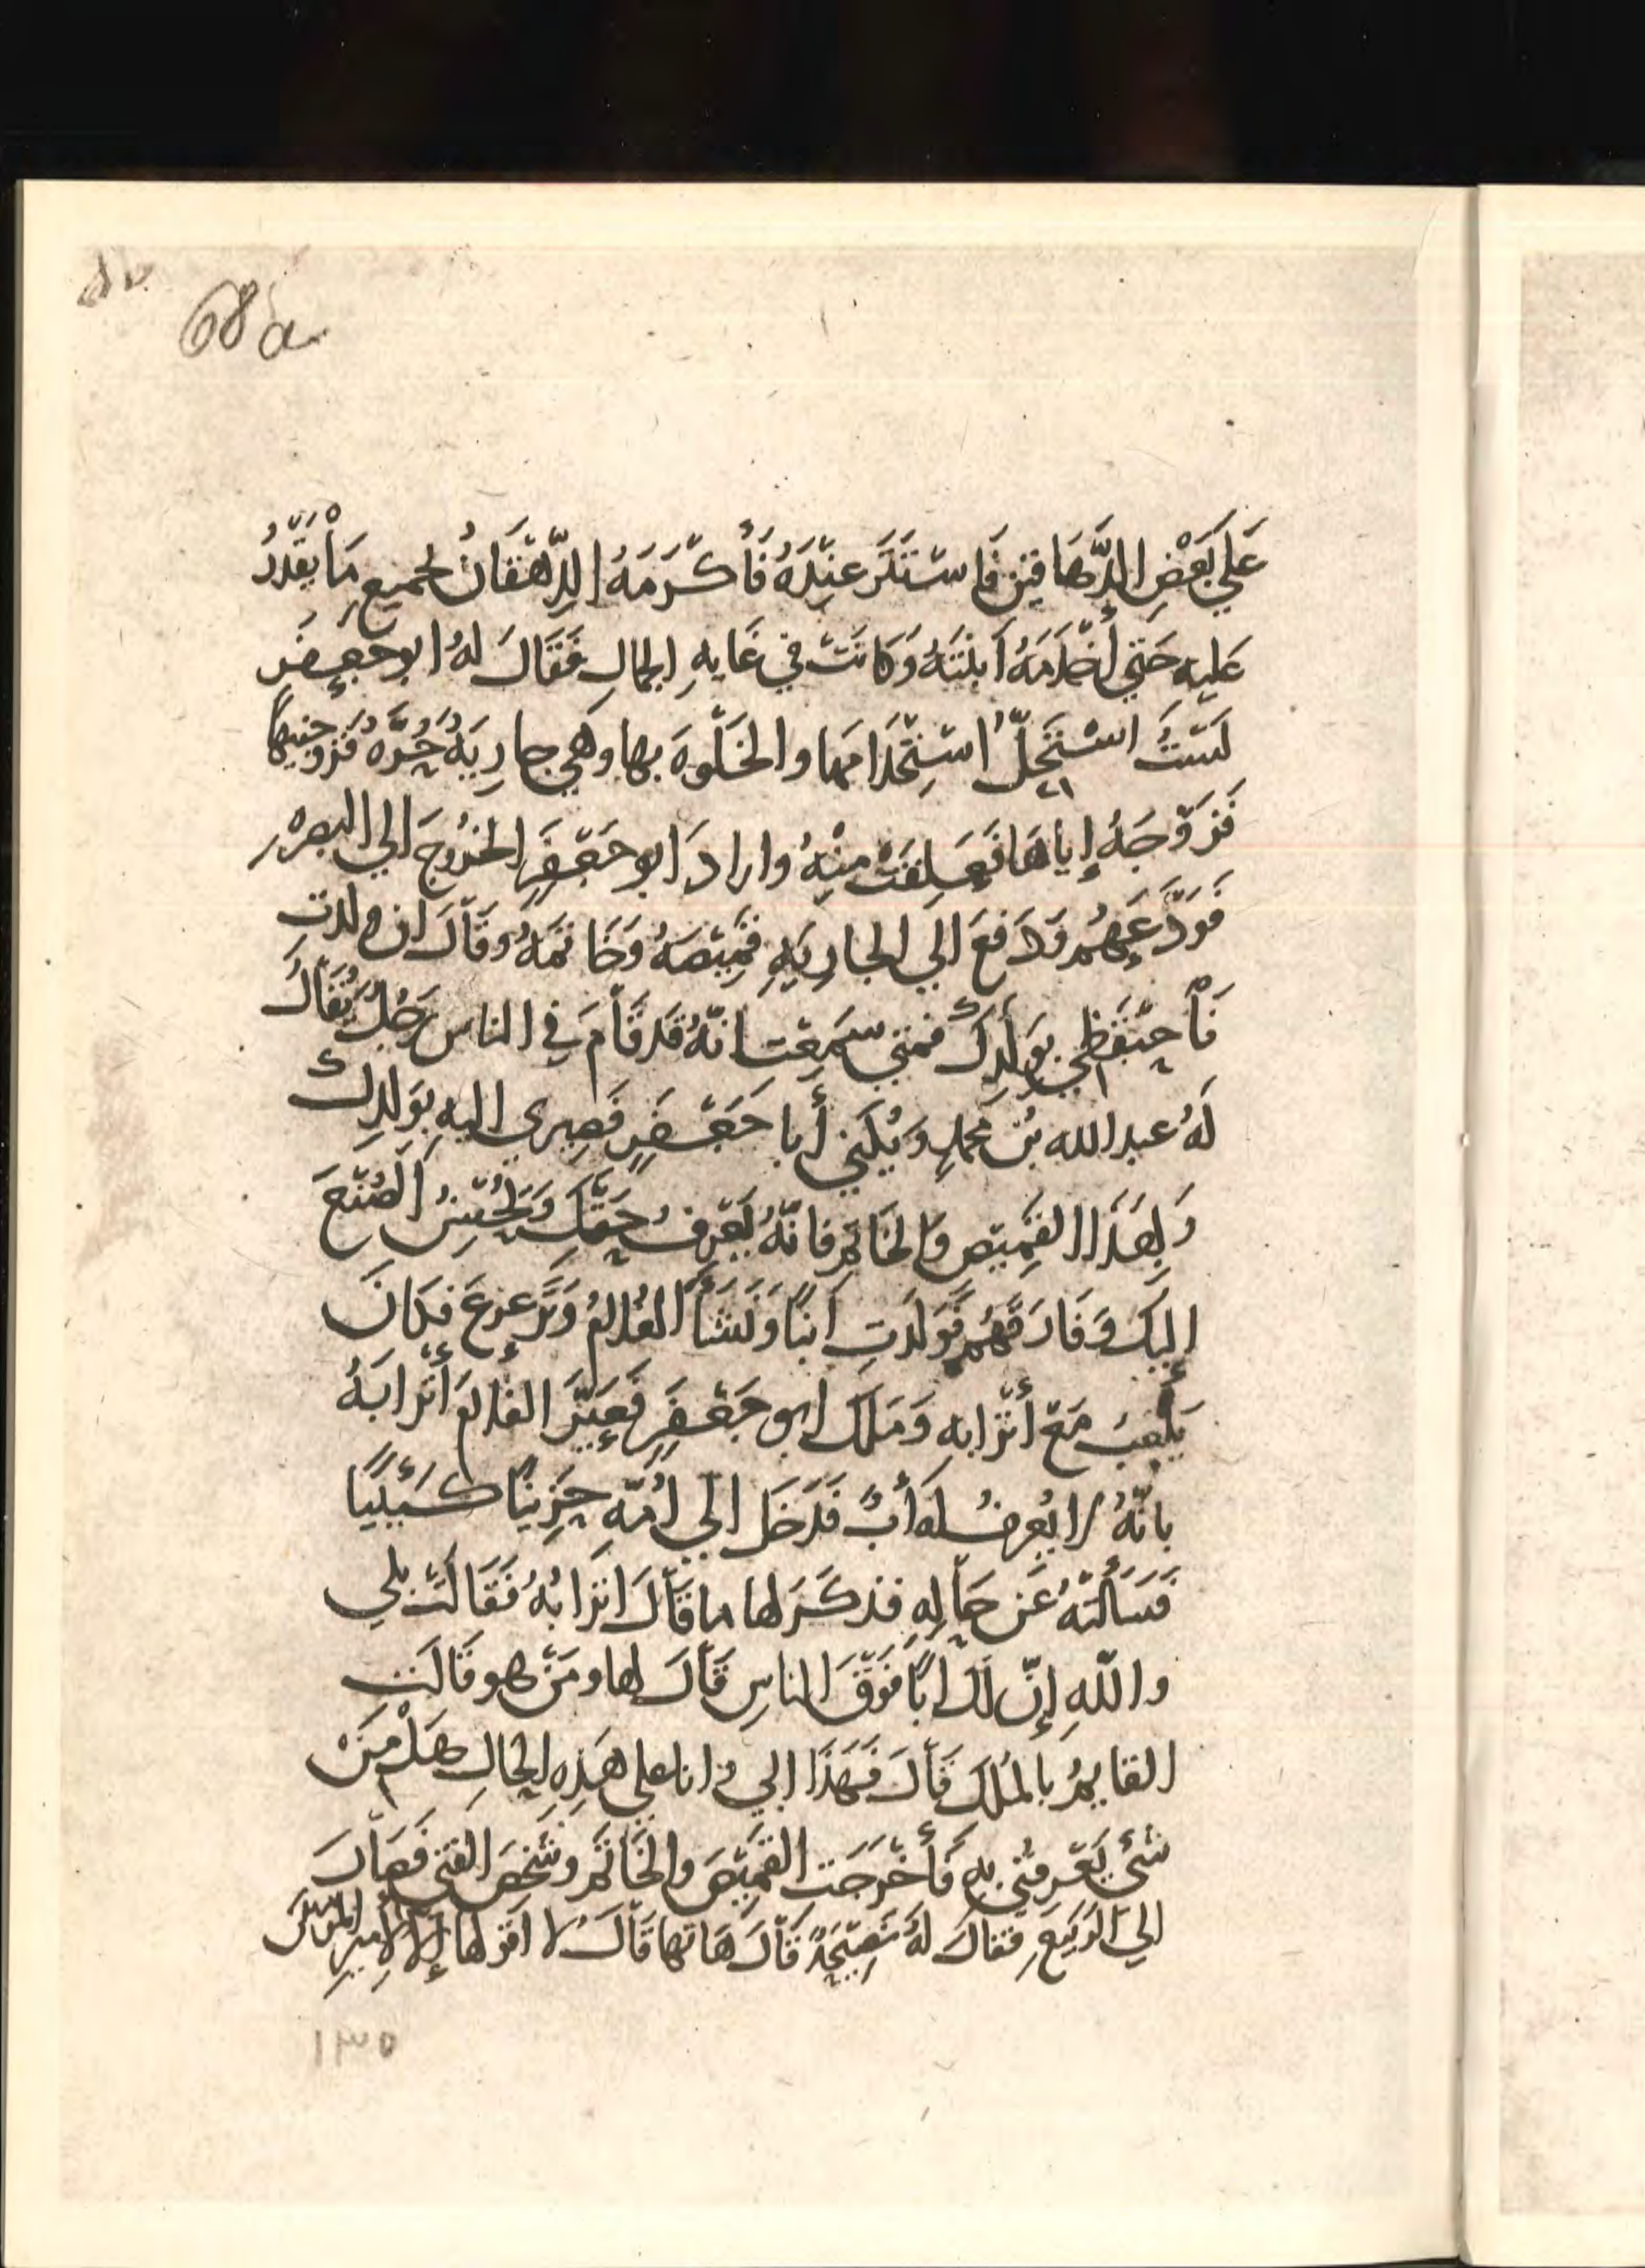 68a
عَلي بَعْضِ الدَّهَاقين فَاسْتَتَرَ عنِدَهُ فَأَكْرَمَهُ الدِّهْقَانُ لجميعِ مَا يقَدرُ
عَليه حَتي أخْدَمَهُ ابْنَتَهُ وَكانَتْ في غَايهِ الجمالِ فَقَالَ لهُ ابو جَعفَر
لَسْتُ اسْتَحِلُّ اسْتِخْدَامَها والخَلْوَهَ بها وَهْيَ جارِيَهُ حُرَّهُ فَزَوجنيها
فَزَوَّجَهُ إياهَا فَعَلِقَتْ مِنْهُ واراد ابو جَعْفَرِ الخُرُوجَ الي البصرهِ
فَوَدَّعَهُم وَدَفعَ الي الجارِيَهِ قَمِيْصَهُ وَخَاتمَهُ وقَالَ ان ولدتِ
فَاحْتَفِظي بوَلَدِكِ فمتي سَمِعْتِ انّهُ قَد قَامَ فِي الناس رَجُلُ يُقَالُ
لَهُ عبد الله بْن محمدٍ وَيُكني أبا جَعْفَرٍ فَصِيرِي اليهِ بوَلدِكِ
وَبِهَذَا القَمِيْصِ وَالخَاتَمِ فانّهُ يَعْرِفُ حَقَّكِ وَيُحْسِنُ الصُنْعَ
إليكِ وَفَارَقَهُم فَوَلَدَتِ ابْنًا وَنَشَأَ الغُلامُ وَتَرَعرعَ فكَانَ
يَلْعَبُ مَعَ أتْرابِهِ وَمَلكَ ابو جَعْفَرٍ فَعَيَّرَ الغلامَ أتْرابُهُ
بانّهُ لا يُعرفُ لَهُ أبٌ فَدَخَل الي أُمّهِ حَزِينًا كَئيبًا
فَسَألَتْهُ عَن حَالِهِ فذكَرَ لها ما قَالَ اتْرَابُهُ فَقَالَتْ بلي
واللّهِ إنّ لَكَ ابًا فَوْقَ الناسِ قَالَ لها ومَنْ هو قالَت
القايمُ بالمُلك قَالَ فَهَذَا ابي وانا علي هَذِهِ الحالِ هَلْ مِنْ
شئ يَعْرِفُني بهِ فَأخْرَجَت القَمِيْصَ والخَاتَمَ وشَخَصَ الفتي فصَارَ
الي الرَبيعِ فقالَ لهُ نَصِيْحَةً قَالَ هَاتها قَالَ لا اقولها إلا لامِيرِ المؤمنين
١٣٥